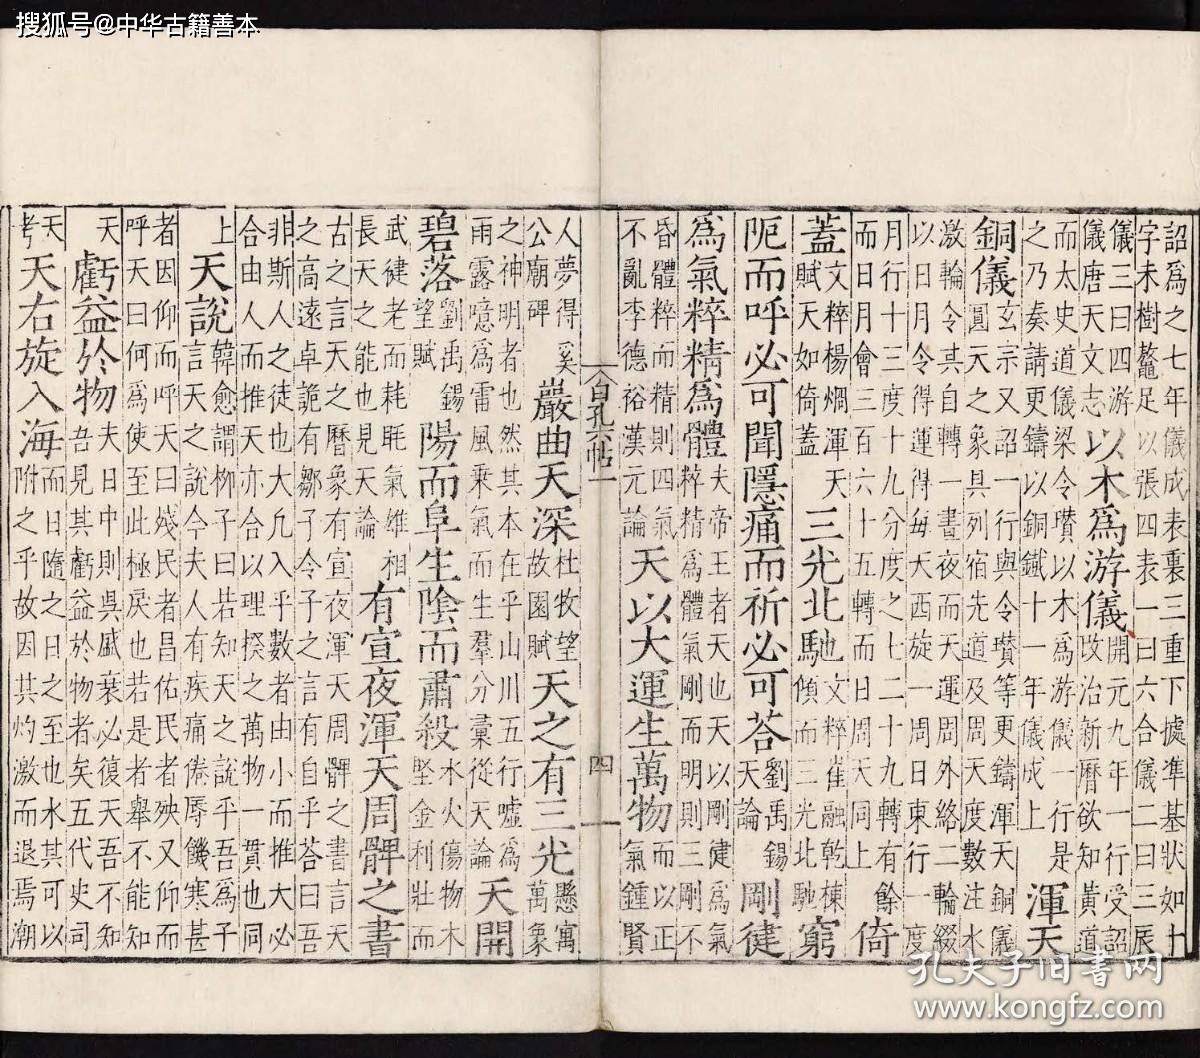 搜狐号@中华古籍善本
詔為之七年儀成表裏三重下據準基狀如十
字末樹鼇足以張四表一曰六合儀二曰三辰
儀三曰四游
儀唐天文志
以木為游儀
開元九年一行受詔
改治新曆欲知黃道
而太史道儀梁令瓚以木為游儀一行是
之乃奏請更鑄以銅鐵十一年儀成上
渾天
銅儀
玄宗又詔一行與令瓚等更鑄渾天銅儀
圓天之象具列宿先道及周天度數注水
激輪令其自轉一晝夜而天運周外絡二輪綴
以日月令得運得每天西旋一周日東行一度
月行十三度十九分度之七二十九轉有餘
而日月會三百六十五轉而日周天同上
倚
蓋
文粹楊烱渾天
賦天如倚蓋
三光北馳
文粹崔融乾棟
傾而三光北馳
窮
阨而呼必可聞隱痛而祈必可荅
劉禹錫
天論
剛健
為氣粹精為體
夫帝王者天也天以剛健為氣
粹精為體氣剛而明則三剛不
昏體粹而精則四氣
不亂李德裕漢元論
天以大運生萬物
而以正
氣鍾賢
白孔六帖一
四
人夢得奚
公廟碑
巖曲天深
杜牧望
故園賦
天之有三光
懸寓
萬象
之神明者也然其本在乎山川五行噓為
雨露噫為雷風乘氣而生羣分彙從天論
天開
碧落
劉禹錫
望賦
陽而阜生陰而肅殺
水火傷物木
堅金利壯而
武健老而耗眊氣雄相
長天之能也見天論
有宣夜渾天周髀之書
古之言天之曆象有宣夜渾天周髀之書言天
之高遠卓詭有鄒子今子之言有自乎荅曰吾
非斯人之徒也大凡入乎數者由小而推大必
合由人而推天亦合以理揆之萬物一貫也同
上
天說
韓愈謂柳子曰若知天之說乎吾為子
言天之說今夫人有疾痛倦辱饑寒甚
者因仰而呼天曰殘民者昌佑民者殃又仰而
呼天曰何為使至此極戾也若是者舉不能知
天
虧益於物
夫日中則昃盛衰必復天吾不知
吾見其虧益於物者矣五代史司
天
考
天右旋入海
而日隨之日之至也水其可以
附之乎故因其灼激而退焉潮
孔夫子旧书网
www.kongfz.com